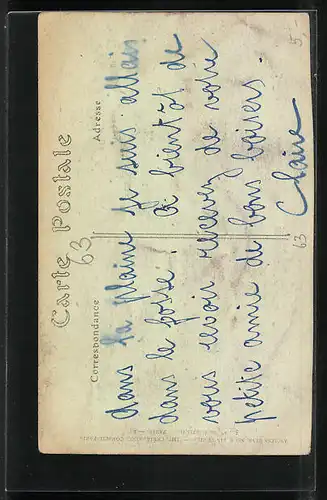 Carte Postale
63
Correspondance
Adresse
dans la plaine je suis allais
dans le foste. Si bientôt de
vous revoir recevez de votre
petite amie de bons baisers.
Claire
63
5,-